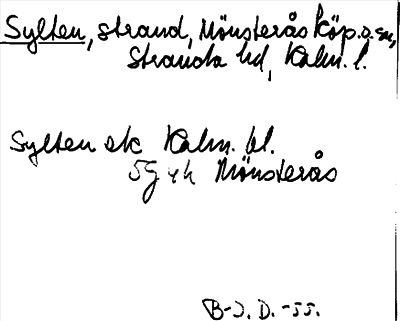 Sylten, strand, Mönsterås köp. o. sn,
Stranda hd, Kalm. l.
Sylten ek Kalm. bl.
5G 4h Mönsterås
B-J. D. -55.